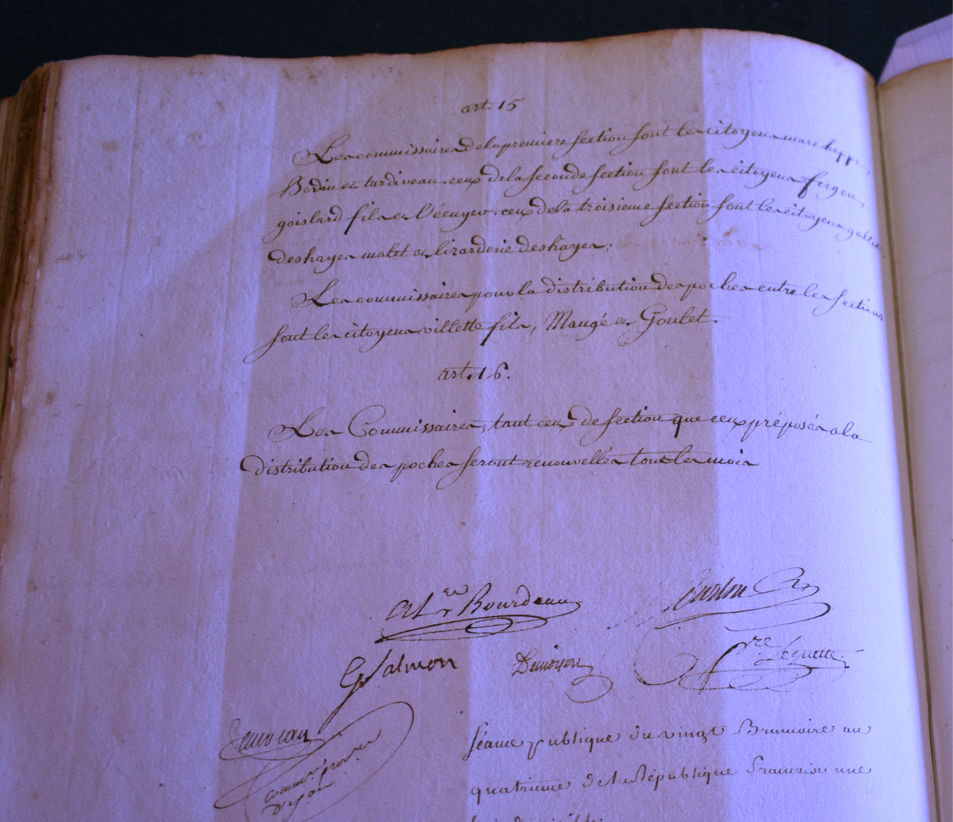 art 15
Les commissaires de la premiere section sont les citoyens marc
Bodin et tardiveau. ceux de la seconde section sont les citoyens
goislard fils et l'écuyer. ceux de la troisieme section sont les citoyens
deshayes malet et lizarderie deshayes.
Les commissaires pour la distribution des poches entre les sections
sont les citoyens villette fils, Maugé et Goulet.
art. 16.
Les Commissaires, tant ceux de section que ceux préposés a la
distribution des poches seront renouvellés tous les mois
Bourdeau
G Salmon
séance publique du vingt Brumaire an
quatrieme de la République francaise une